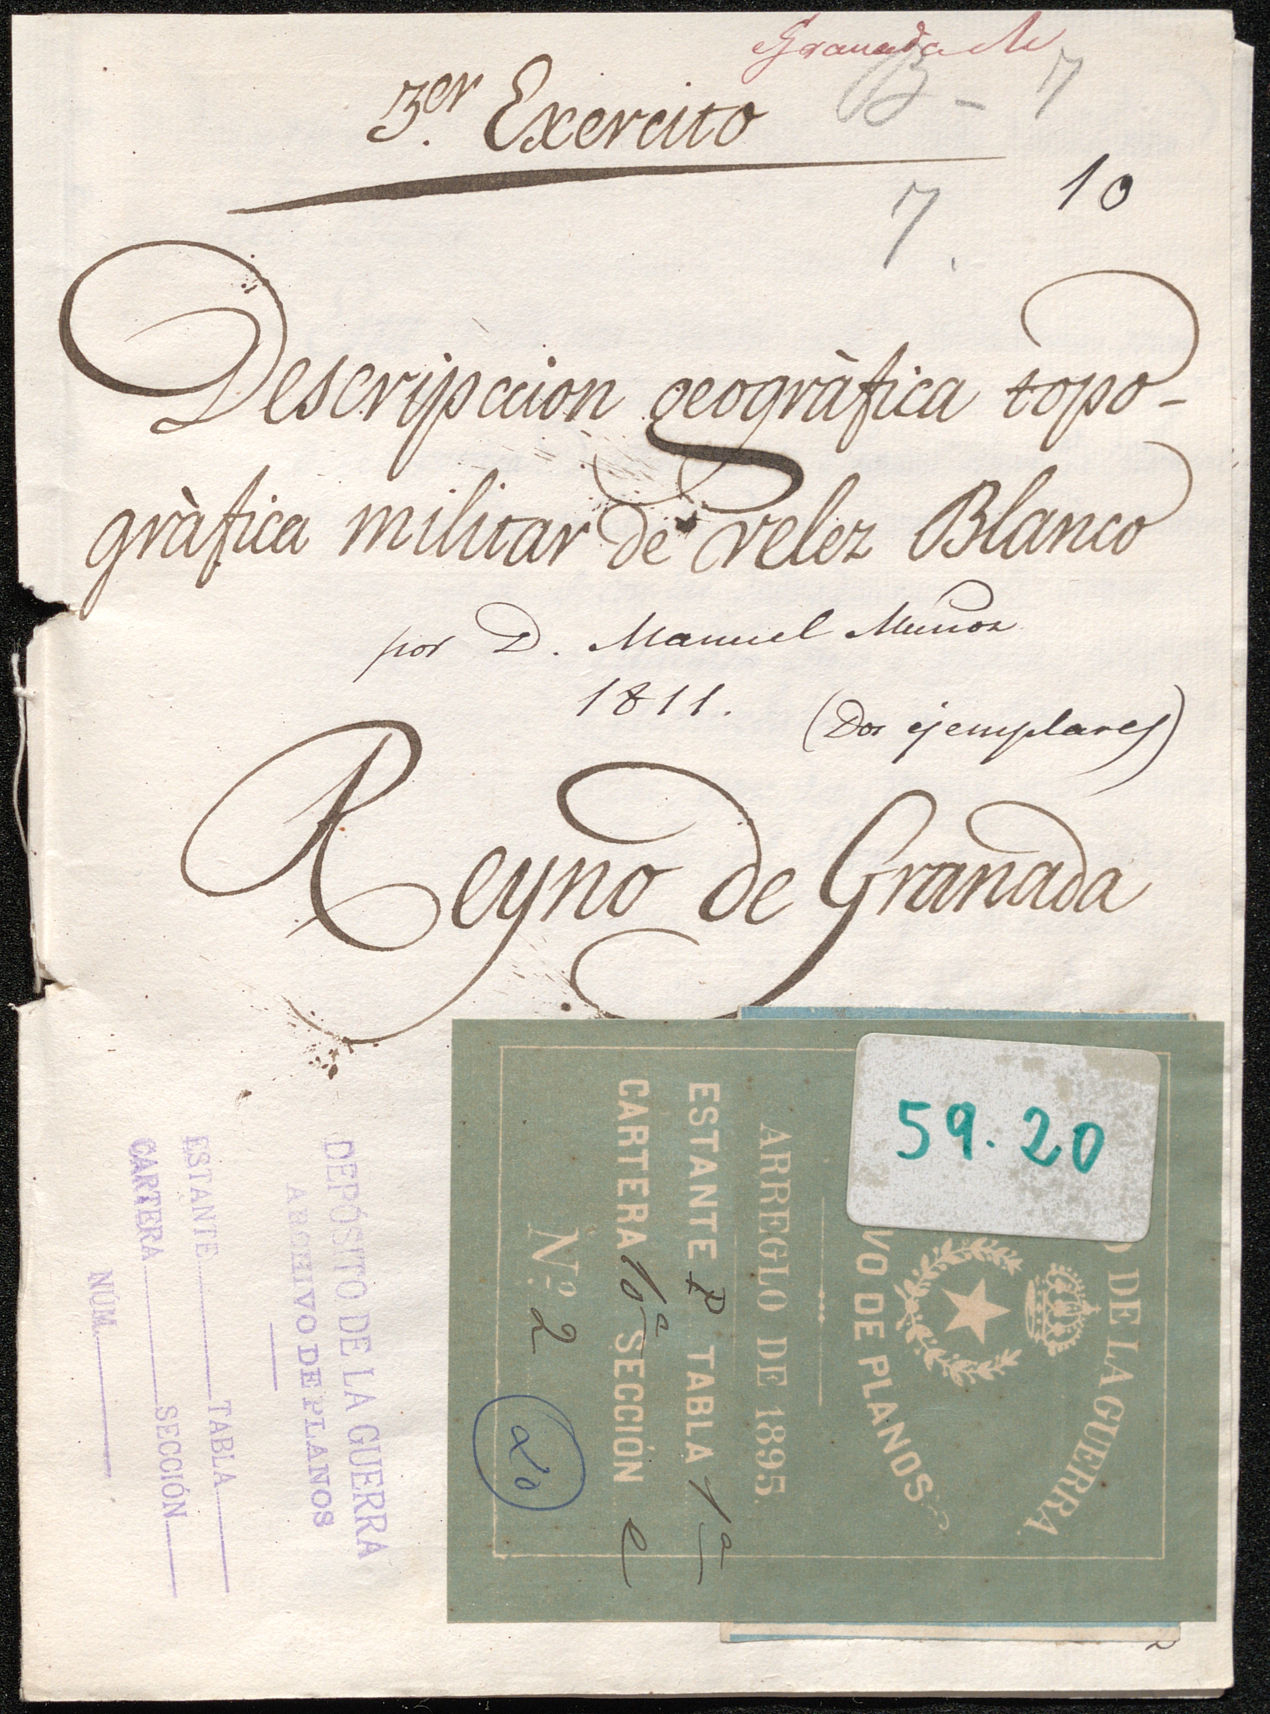 Granada
3.er Exercito
B - 7
10
7.
Descripccion geogràfica topo-
gràfica militar de velez Blanco
por D. Manuel Muñoz
1811.
(Dos ejemplares)
Reyno de Granada
DEPÓSITO DE LA GUERRA
ARCHIVO DE PLANOS
ESTANTE TABLA
CARTERA SECCIÓN
NÚM.
59.20
DE LA GUERRA
VO DE PLANOS
ARREGLO DE 1895.
ESTANTE P TABLA 1ª
CARTERA 10ª SECCIÓN e
Nº: 2
20